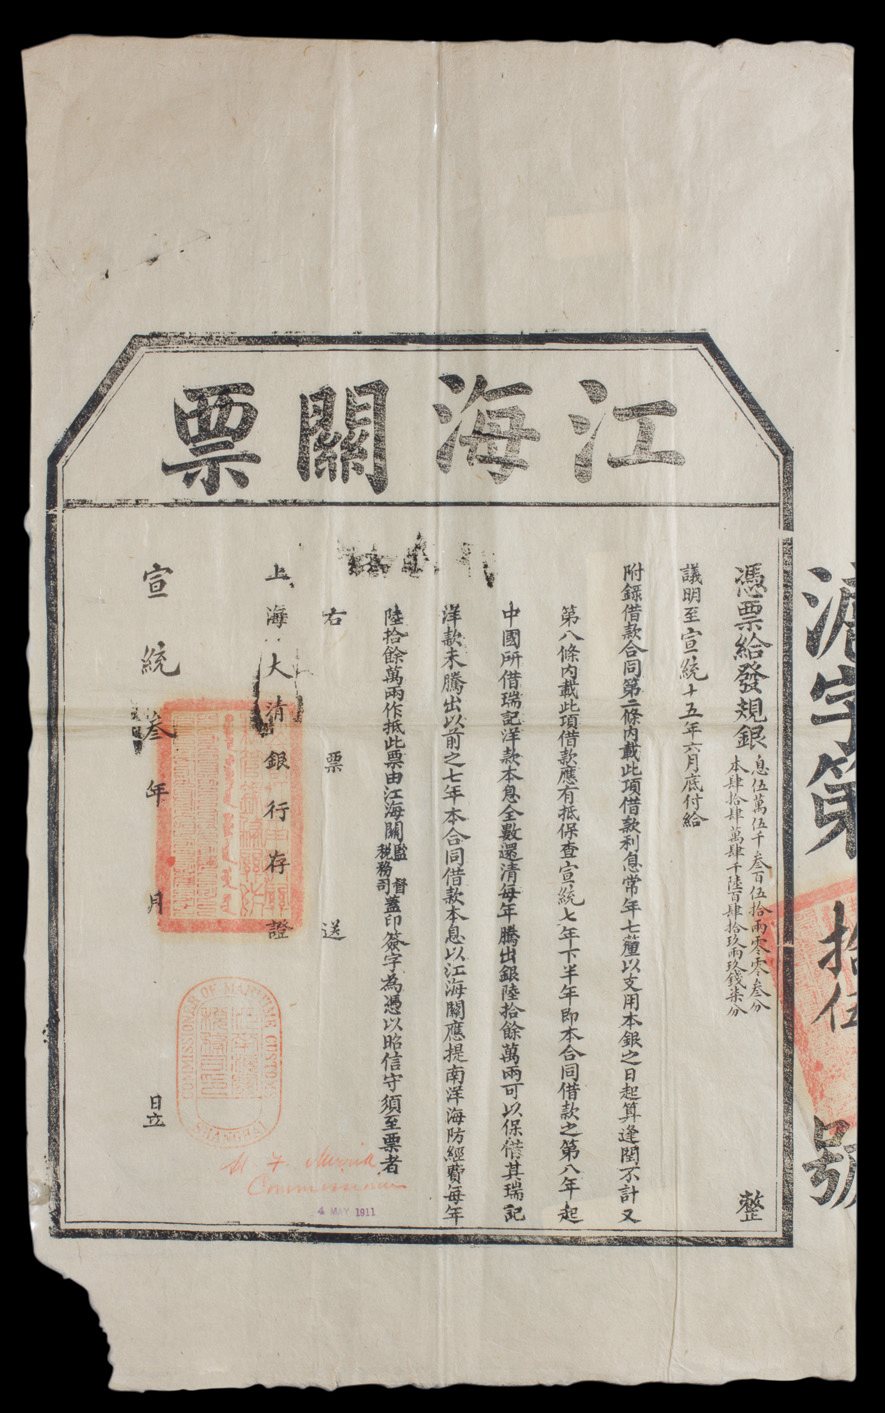 江海關票
滬字第拾伍號
憑票給發規銀息伍萬伍千叁百伍拾兩零零叁分整
本肆拾肆萬肆千陸百肆拾玖兩玖錢柒分
議明至宣統十五年六月底付給
附錄借款合同第二條內載此項借款利息常年七釐以支用本銀之日起算逢閏不計又
第八條內載此項借款應有抵保查宣統七年下半年即本合同借款之第八年起
中國所借瑞記洋款本息全數還清每年騰出銀陸拾餘萬兩可以保借其瑞記
洋款未騰出以前之七年本合同借款本息以江海關應提南洋海防經費每年
陸拾餘萬兩作抵此票由江海關監督稅務司蓋印簽字為憑以昭信守須至票者
右票送
上海大清銀行存證
宣統叁年月日立
COMMISSIONER OF MARITIME CUSTOMS
SHANGHAI
Commissioner
4 MAY 1911